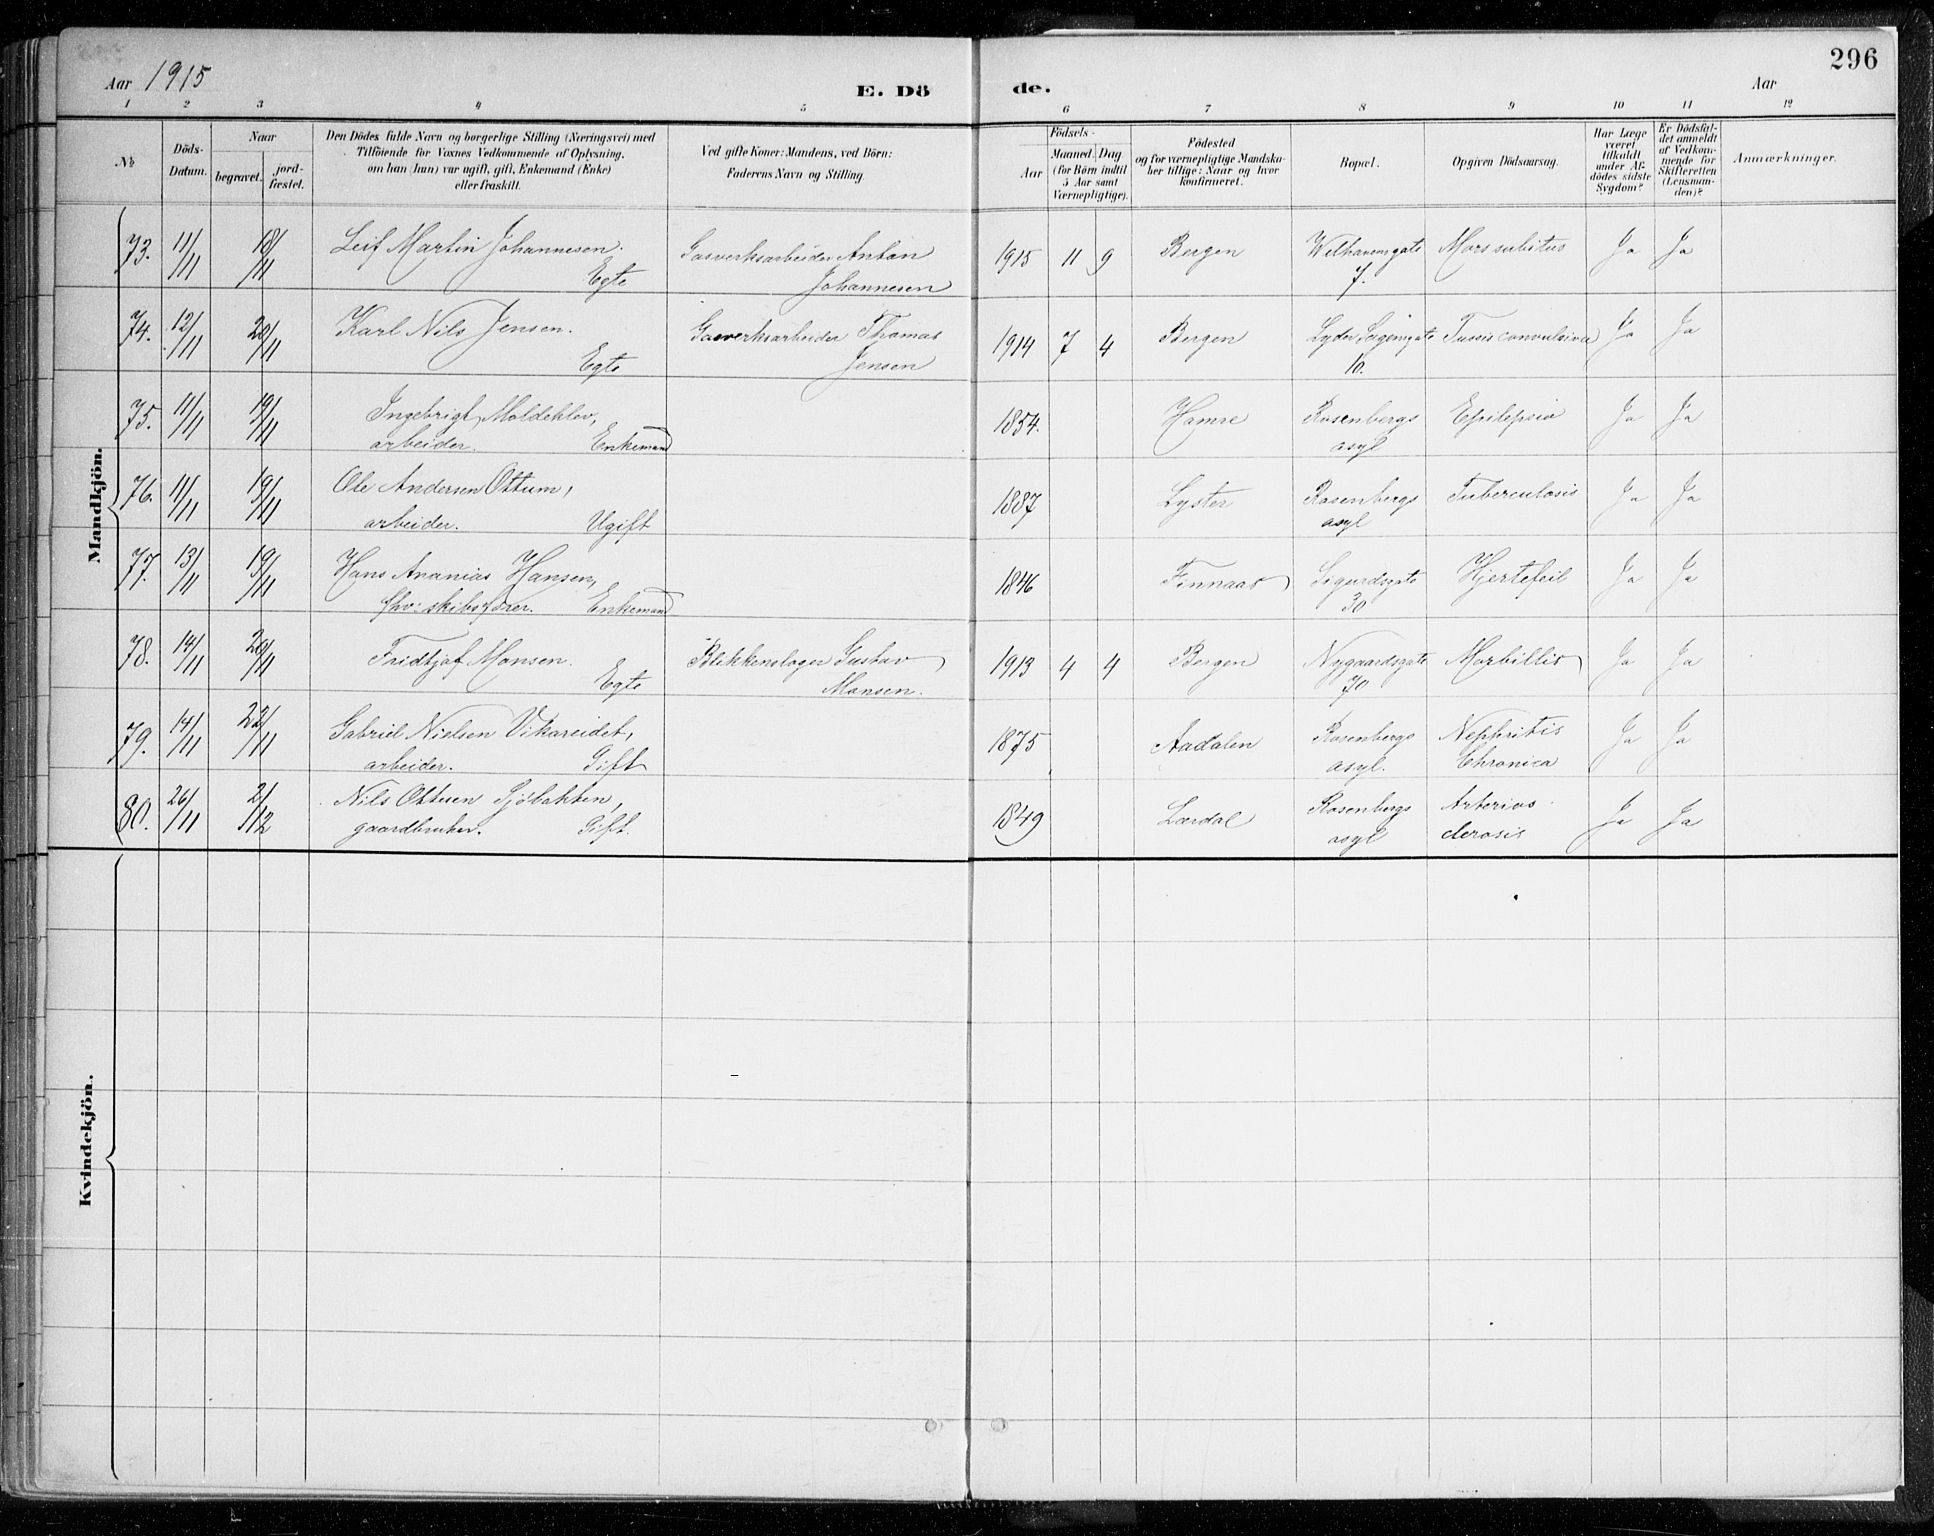 296
Aar 1915
E. Dö de.
Aar
1 2 3 4 5 6 7 8 9 10 11 12
No
Döds-Datum.
Naar
begravet. jordfæstet.
Den Dödes fulde Navn og borgerlige Stilling (Næringsvei) med
Tilföiende for Voxnes Vedkommende af Oplysning,
om han (hun) var ugift, gift, Enkemand (Enke)
eller fraskilt.
Ved gifte Koner: Mandens, ved Börn:
Faderens Navn og Stilling.
Födsels-
Aar
Maaned. Dag
(for Börn indtil
5 Aar samt
Værnepligtige).
Födested
og for værnepligtige Mandska-
ber tillige: Naar og hvor
konfirmeret.
Bopæl.
Opgiven Dödsaarsag.
Har Læge
været
tilkaldt
under Af-
dödes sidste
Sygdom?
Er Dödsfal-
det anmeldt
af Vedkom-
mende for
Skifteretten
(Lensman-
den)?
Anmærkninger.
Mandkjön.
73. 11/11 18/11 Leif Martin Johannesen. Gasverksarbeider Anton 1915 11 9 Bergen Welhavensgate Mors subitus Ja Ja
Egte Johannesen 7.
74. 12/11 20/11 Karl Nils Jensen. Gasverksarbeider Thomas 1914 7 4 Bergen Lyder Sagensgate Tussis convulsiva Ja Ja
Egte Jensen 10.
75. 11/11 19/11 Ingebrigt Moldeklev, 1854. Hamre Rosenbergs Epilepsia Ja Ja
arbeider. Enkemand asyl
76. 11/11 19/11 Ole Andersen Ottum, 1887 Lyster Rosenbergs Tuberculosis Ja Ja
arbeider. Ugift asyl
77. 13/11 19/11 Hans Ananias Hansen, 1846 Finnaas Sigurdsgate Hjertefeil Ja Ja
fhv: skibsfører. Enkemand 30
78. 14/11 20/11 Fridtjof Monsen. Blikkenslager Gustav 1913 4 4 Bergen Nygaardsgate Morbillis Ja Ja
Egte Monsen. 70
79. 14/11 22/11 Gabriel Nielsen Vikareidet, 1875 Aadalen Rosenbergs Nephritis Ja Ja
arbeider. Gift asyl. Chronica
80. 26/11 2/12 Nils Ottesen Sjöbakken, 1849 Lærdal Rosenbergs Arterios Ja Ja
gaardbruker. Gift. asyl clerosis
Kvindekjön.